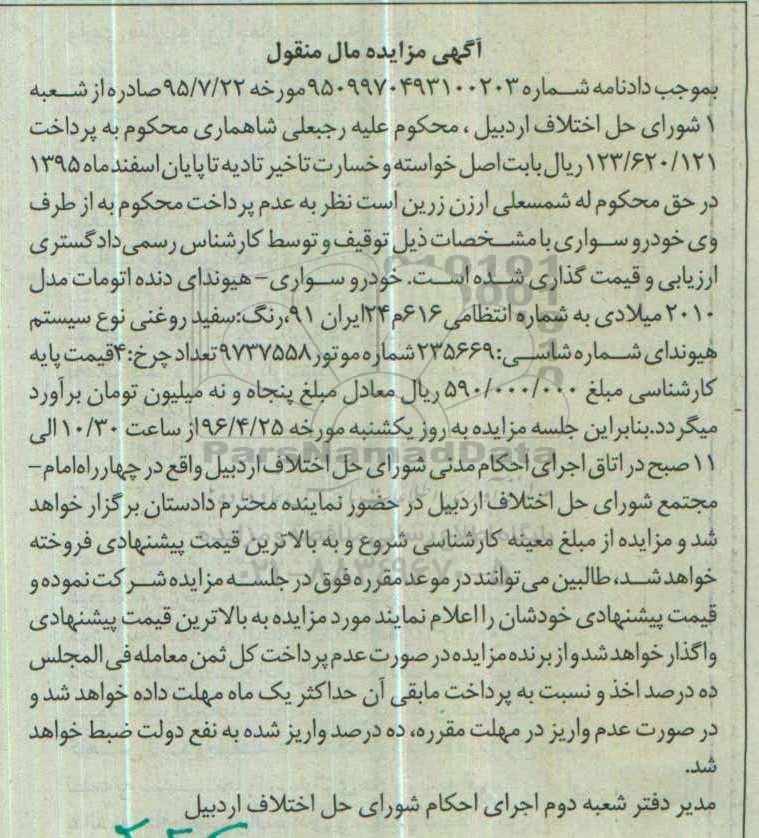 آگهی مزایده مال منقول
بموجب دادنامه شماره ۹۵۰۹۹۷۰۴۹۳۱۰۰۲۰۳ مورخه ۹۵/۷/۲۲ صادره از شعبه
۱ شورای حل اختلاف اردبیل ، محکوم علیه رجبعلی شاهماری محکوم به پرداخت
۱۲۳/۶۲۰/۱۲۱ ریال بابت اصل خواسته و خسارت تاخیر تادیه تا پایان اسفند ماه ۱۳۹۵
در حق محکوم له شمسعلی ارزن زرین است نظر به عدم پرداخت محکوم به از طرف
وی خودرو سواری با مشخصات ذیل توقیف و توسط کارشناس رسمی دادگستری
ارزیابی و قیمت گذاری شده است. خودرو سواری - هیوندای دنده اتومات مدل
۲۰۱۰ میلادی به شماره انتظامی ۶۱۶م۲۴ایران ۹۱،رنگ:سفید روغنی نوع سیستم
هیوندای شماره شاسی:۲۳۵۶۶۹شماره موتور۹۷۳۷۵۵۸تعداد چرخ:۴قیمت پایه
کارشناسی مبلغ ۵۹۰/۰۰۰/۰۰۰ ریال معادل مبلغ پنجاه و نه میلیون تومان برآورد
میگردد.بنابراین جلسه مزایده به روز یکشنبه مورخه ۹۶/۴/۲۵از ساعت ۱۰/۳۰ الی
۱۱ صبح در اتاق اجرای احکام مدنی شورای حل اختلاف اردبیل واقع در چهارراه امام -
مجتمع شورای حل اختلاف اردبیل در حضور نماینده محترم دادستان برگزار خواهد
شد و مزایده از مبلغ معینه کارشناسی شروع و به بالاترین قیمت پیشنهادی فروخته
خواهد شد، طالبین می توانند در موعد مقرره فوق در جلسه مزایده شرکت نموده و
قیمت پیشنهادی خودشان را اعلام نمایند مورد مزایده به بالاترین قیمت پیشنهادی
واگذار خواهد شد و از برنده مزایده در صورت عدم پرداخت کل ثمن معامله فی المجلس
ده درصد اخذ و نسبت به پرداخت مابقی آن حداکثر یک ماه مهلت داده خواهد شد و
در صورت عدم واریز در مهلت مقرره، ده درصد واریز شده به نفع دولت ضبط خواهد
شد.
مدیر دفتر شعبه دوم اجرای احکام شورای حل اختلاف اردبیل
ParsNamadData